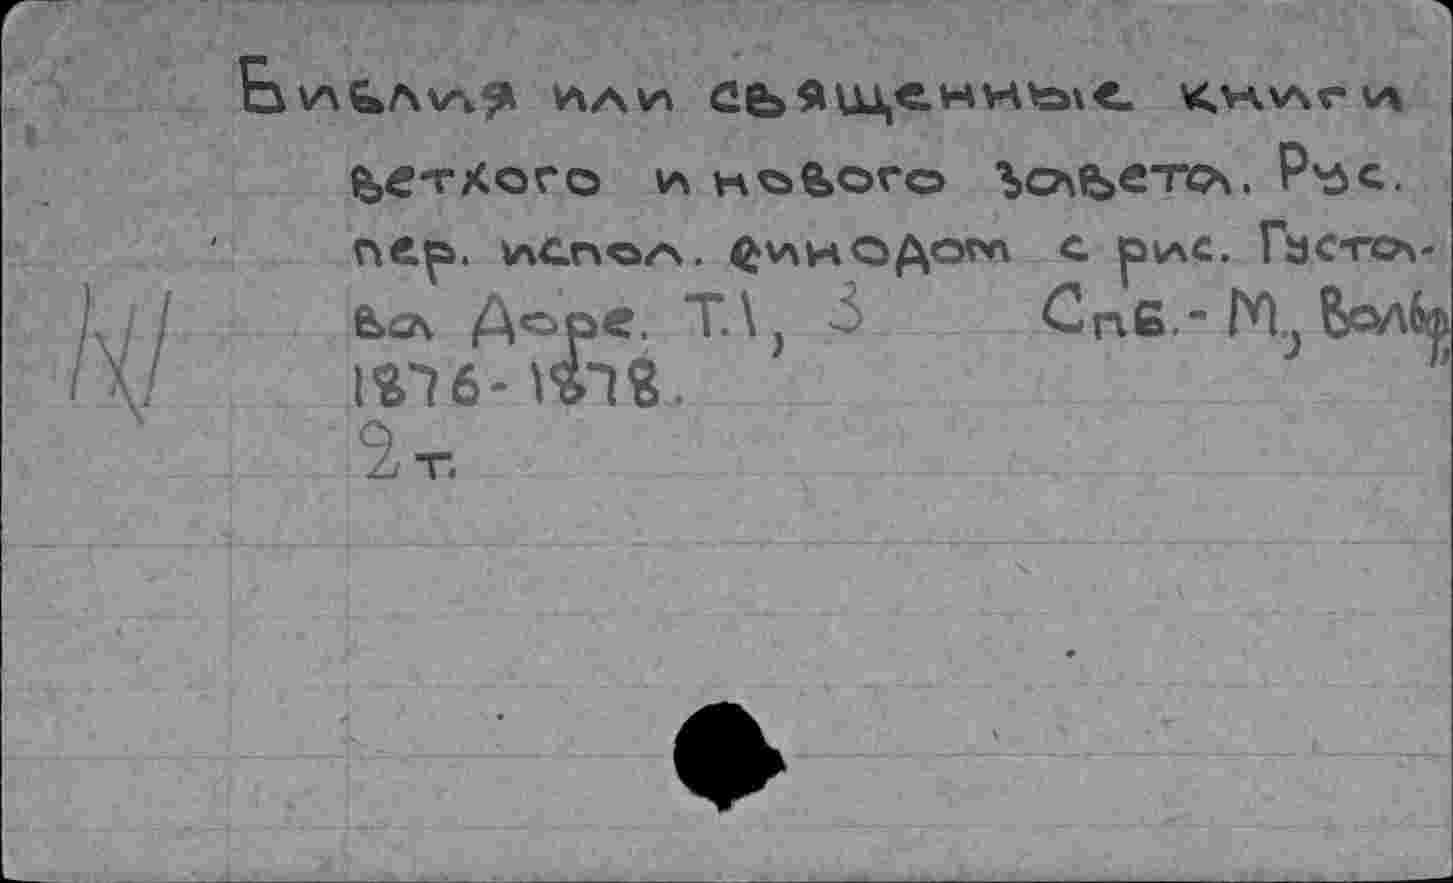 Библия или священные книги
ветхого и нового завета. Рус.
пер. испол. синодом с рис. Густа-
ва Доре. Т.1, 3 Спб.- М., Вольф,
1876-1878.
2 т.